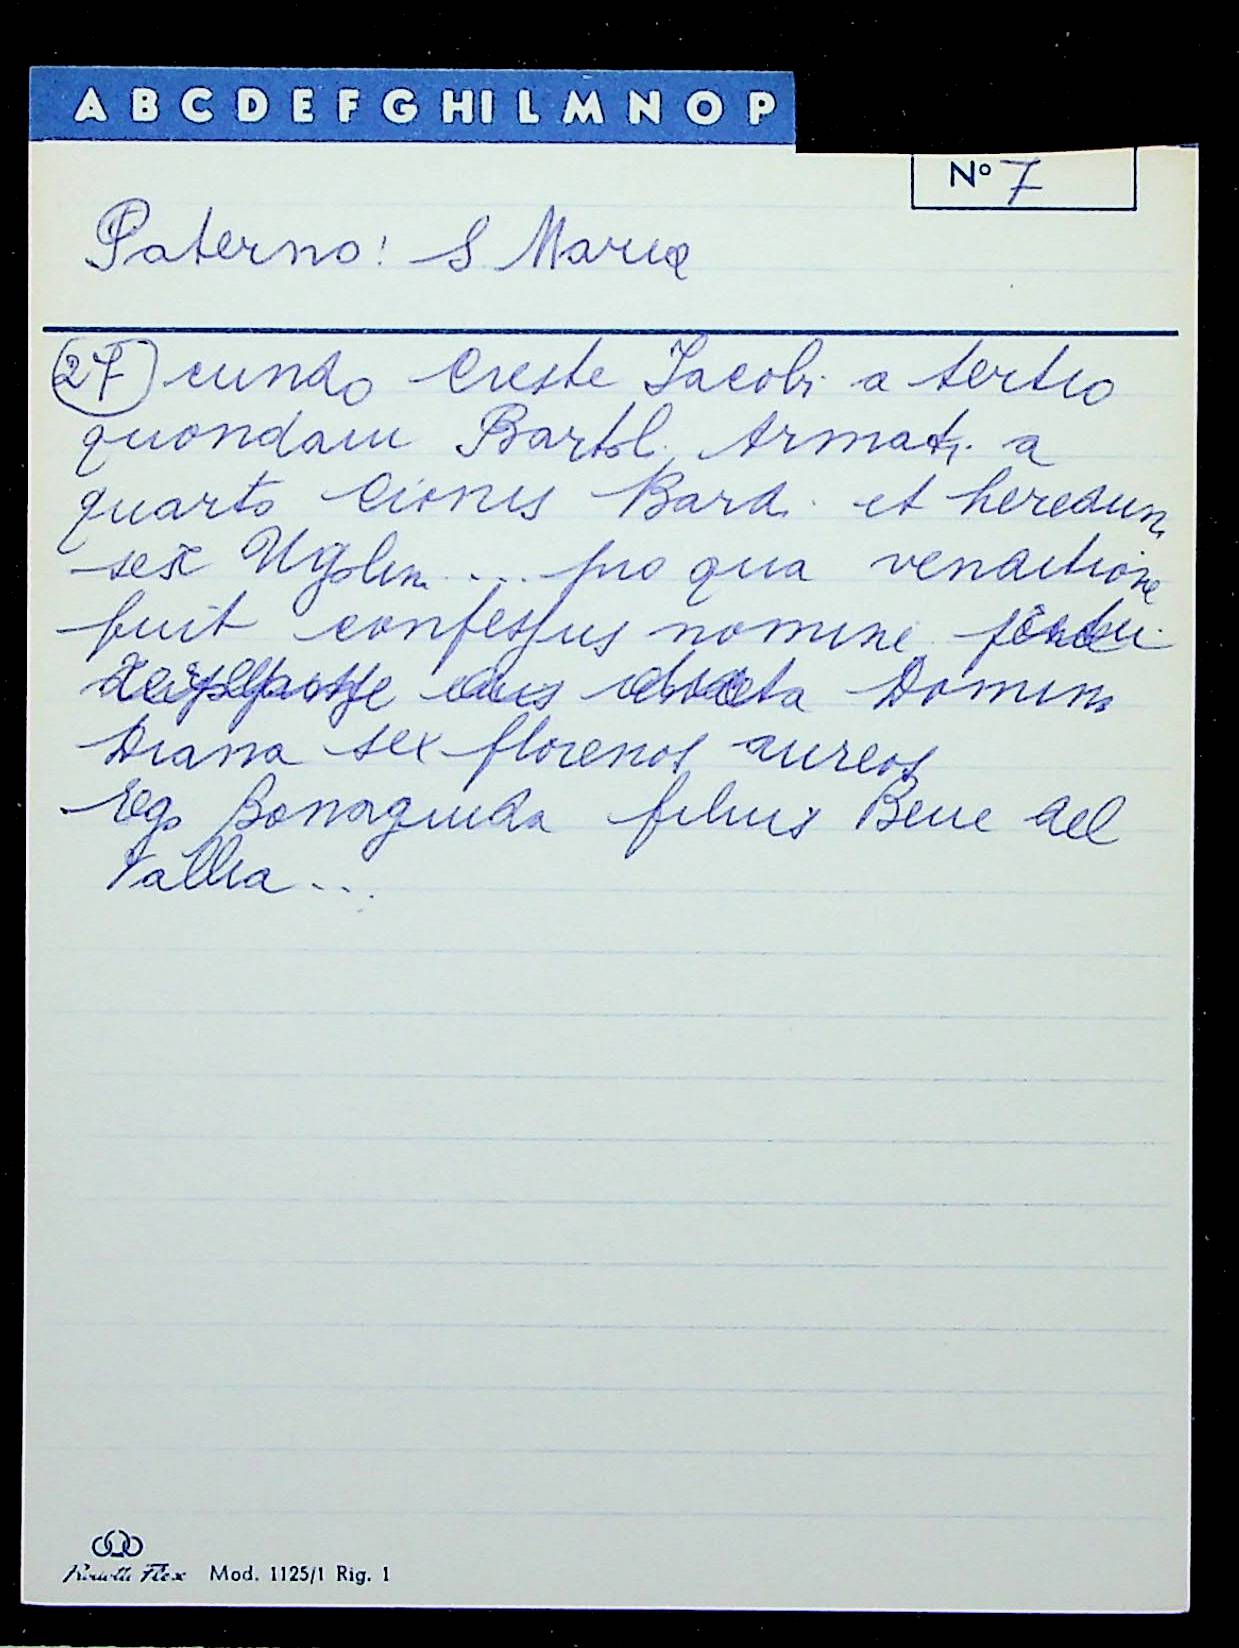 A B C D E F G H I L M N O P
Nº 7
Paterno: S Maria
27 cundo Creste Jacobi a tertio
quondam Bartol. Armati a
quarto Cionis Bardi et heredum
ser Ugolini ... pro qua venditione
fuit confessus nomine
Domini
Diana sex florenos aureos
Ego Bonaguida filius Bene del
Vallia ...
Mod. 1125/1 Rig. 1